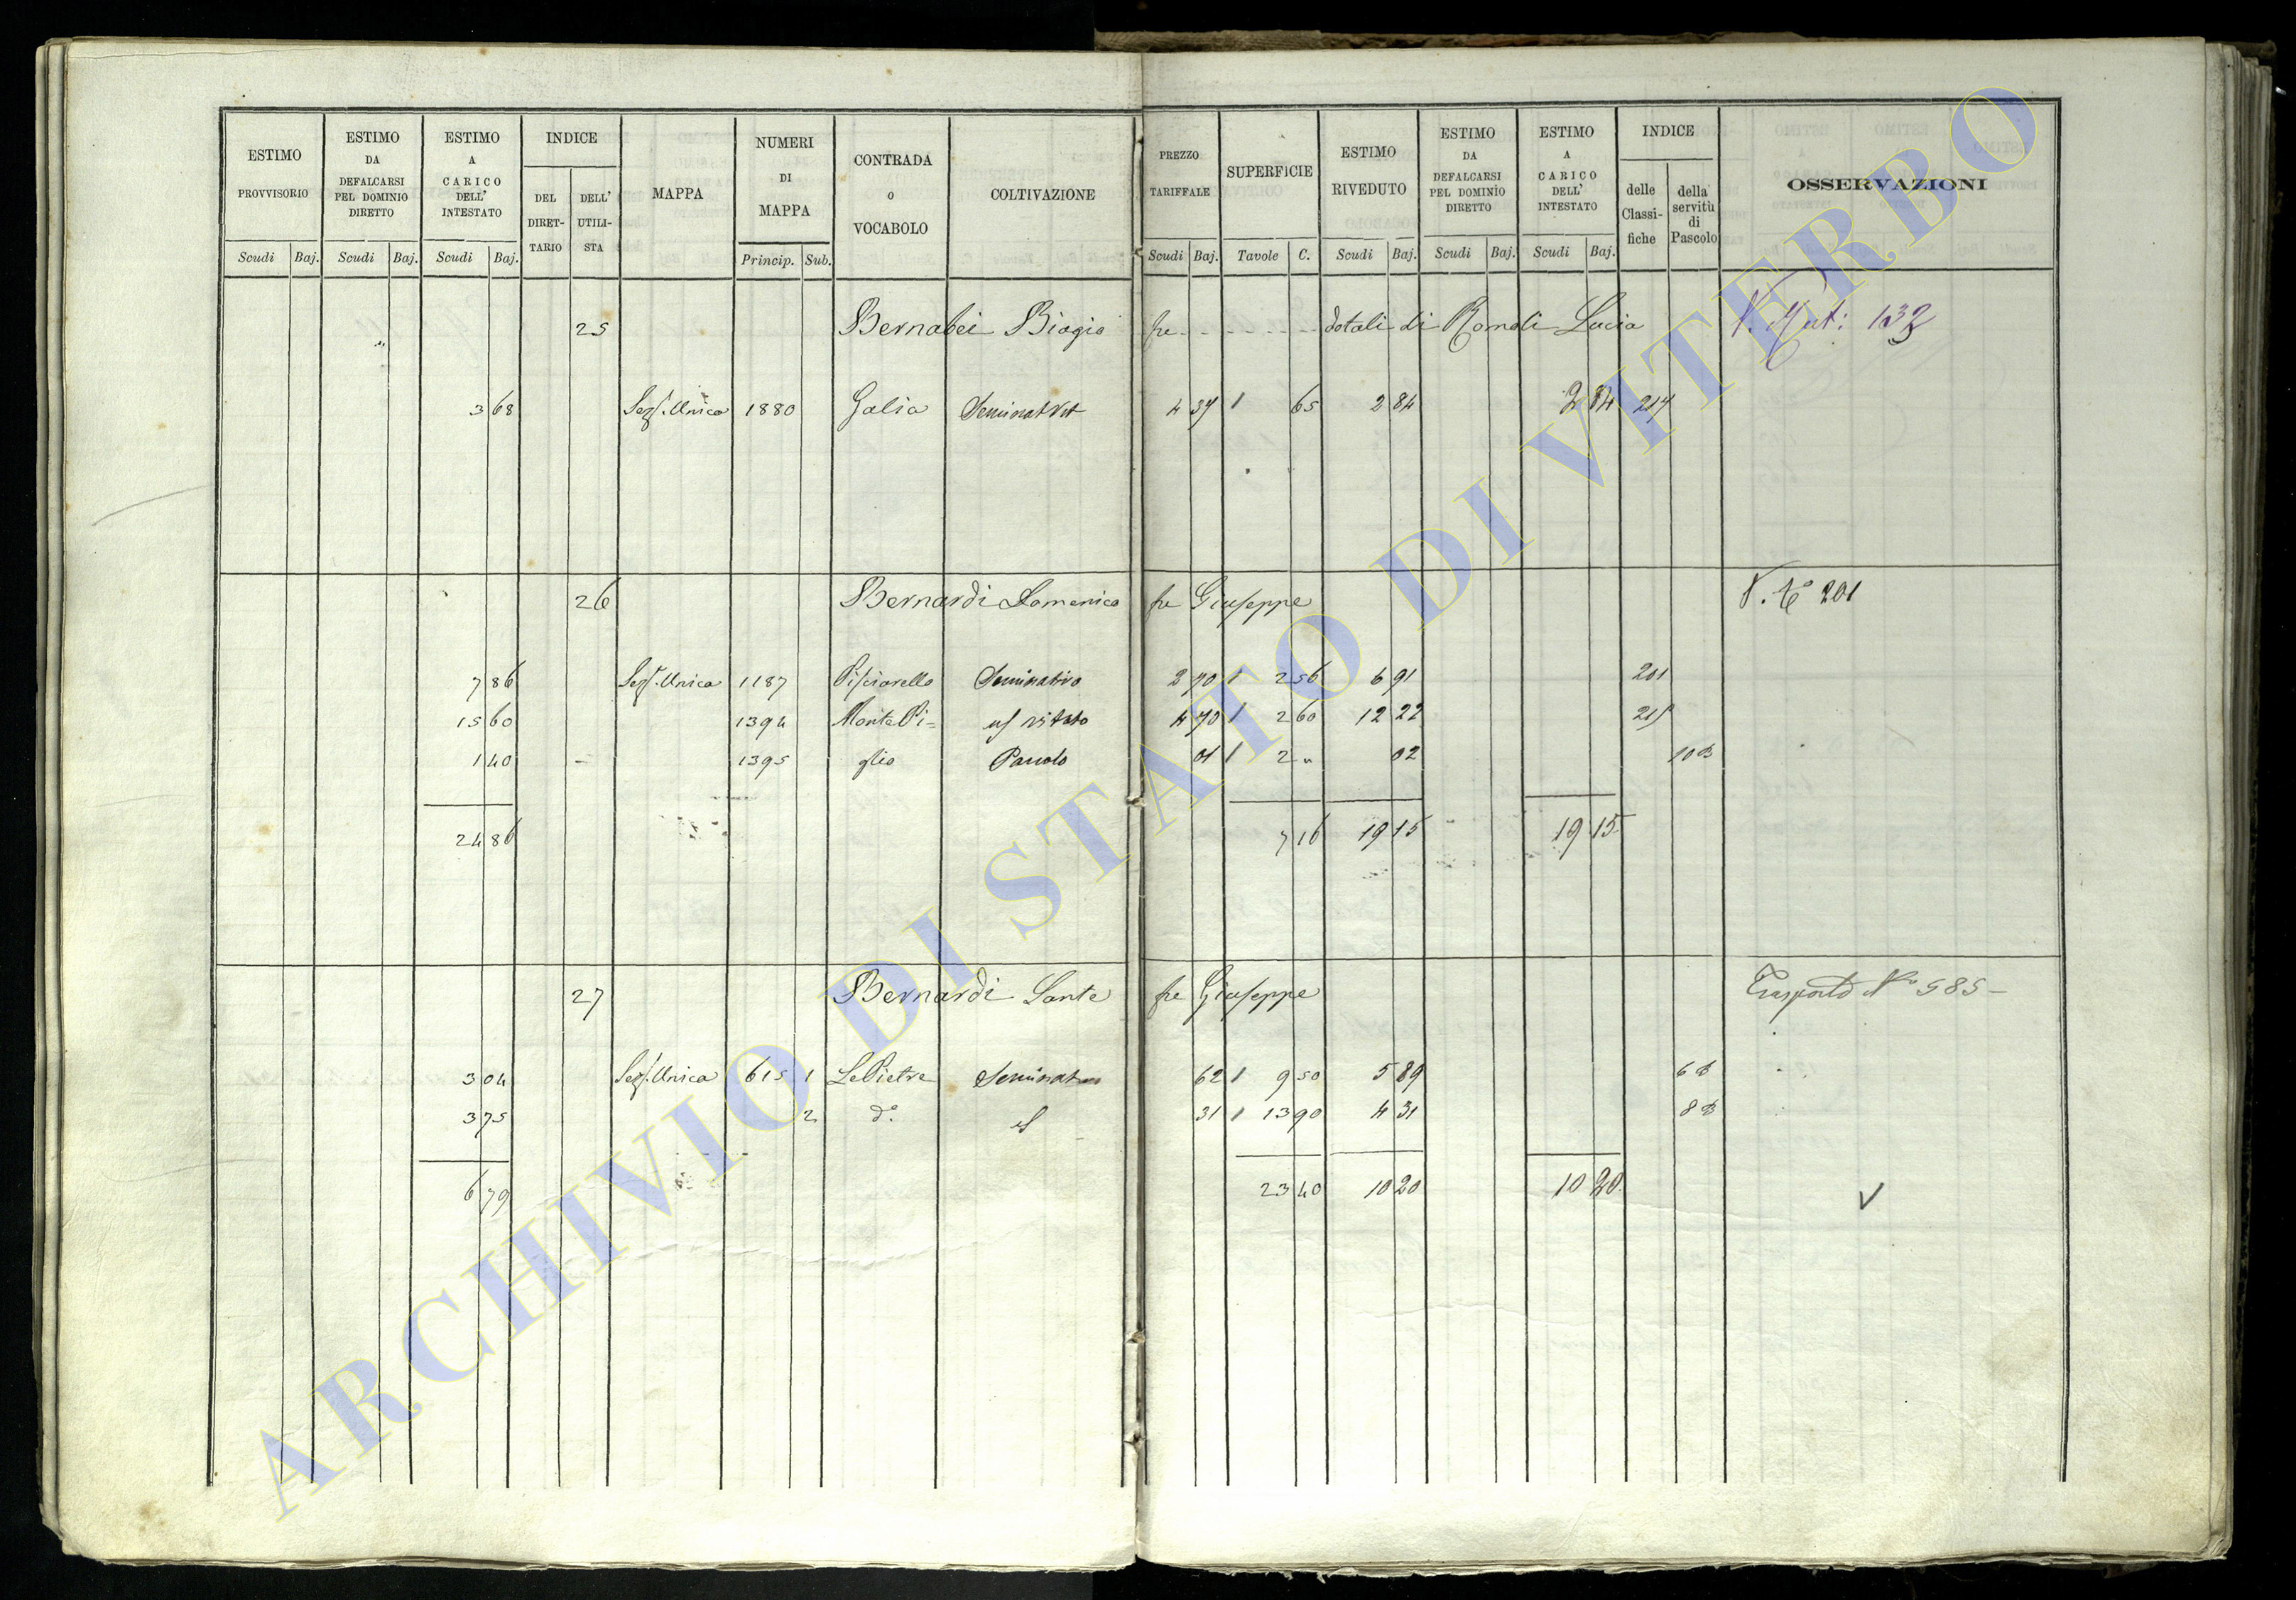 ESTIMO PROVVISORIO Scudi Baj.
ESTIMO DA DEFALCARSI PEL DOMINIO DIRETTO Scudi Baj.
ESTIMO A CARICO DELL' INTESTATO Scudi Baj.
INDICE DEL DIRET-TARIO DELL' UTILI-STA
MAPPA
NUMERI DI MAPPA Princip. Sub.
CONTRADA o VOCABOLO
COLTIVAZIONE
PREZZO TARIFFALE Scudi Baj.
SUPERFICIE Tavole C.
ESTIMO RIVEDUTO Scudi Baj.
ESTIMO DA DEFALCARSI PEL DOMINIO DIRETTO Scudi Baj.
ESTIMO A CARICO DELL' INTESTATO Scudi Baj.
INDICE delle Classi-fiche della servitù di Pascolo
OSSERVAZIONI
25 Bernabei Biagio fu - - - - - - dotali di Romoli Lucia 132
3 68 Sez. Unica 1880 Galia Seminat Vit 4 37 1 65 2 84 2 84 217
26 Bernardi Domenico fu Giuseppe V. N° 201
7 86 Sez. Unica 1187 Pisciarello Seminativo 2 70 1 2 56 6 91 201
15 60 1394 Monte Pi= vitato 4 70 1 2 60 12 22
1 40 - 1395 glio Pascolo 01 1 2 " 02 10 B
24 86 7 16 19 15 19 15
27 Bernardi Sante fu Giuseppe Trasporto N° 585 -
3 04 Sez. Unica 615 1 Le Pietre Seminativo 62 1 9 50 5 89 6 B
3 75 2 d° 31 1 13 90 4 31 8 B
6 79 23 40 10 20 10 20
ARCHIVIO DI STATO DI VITERBO